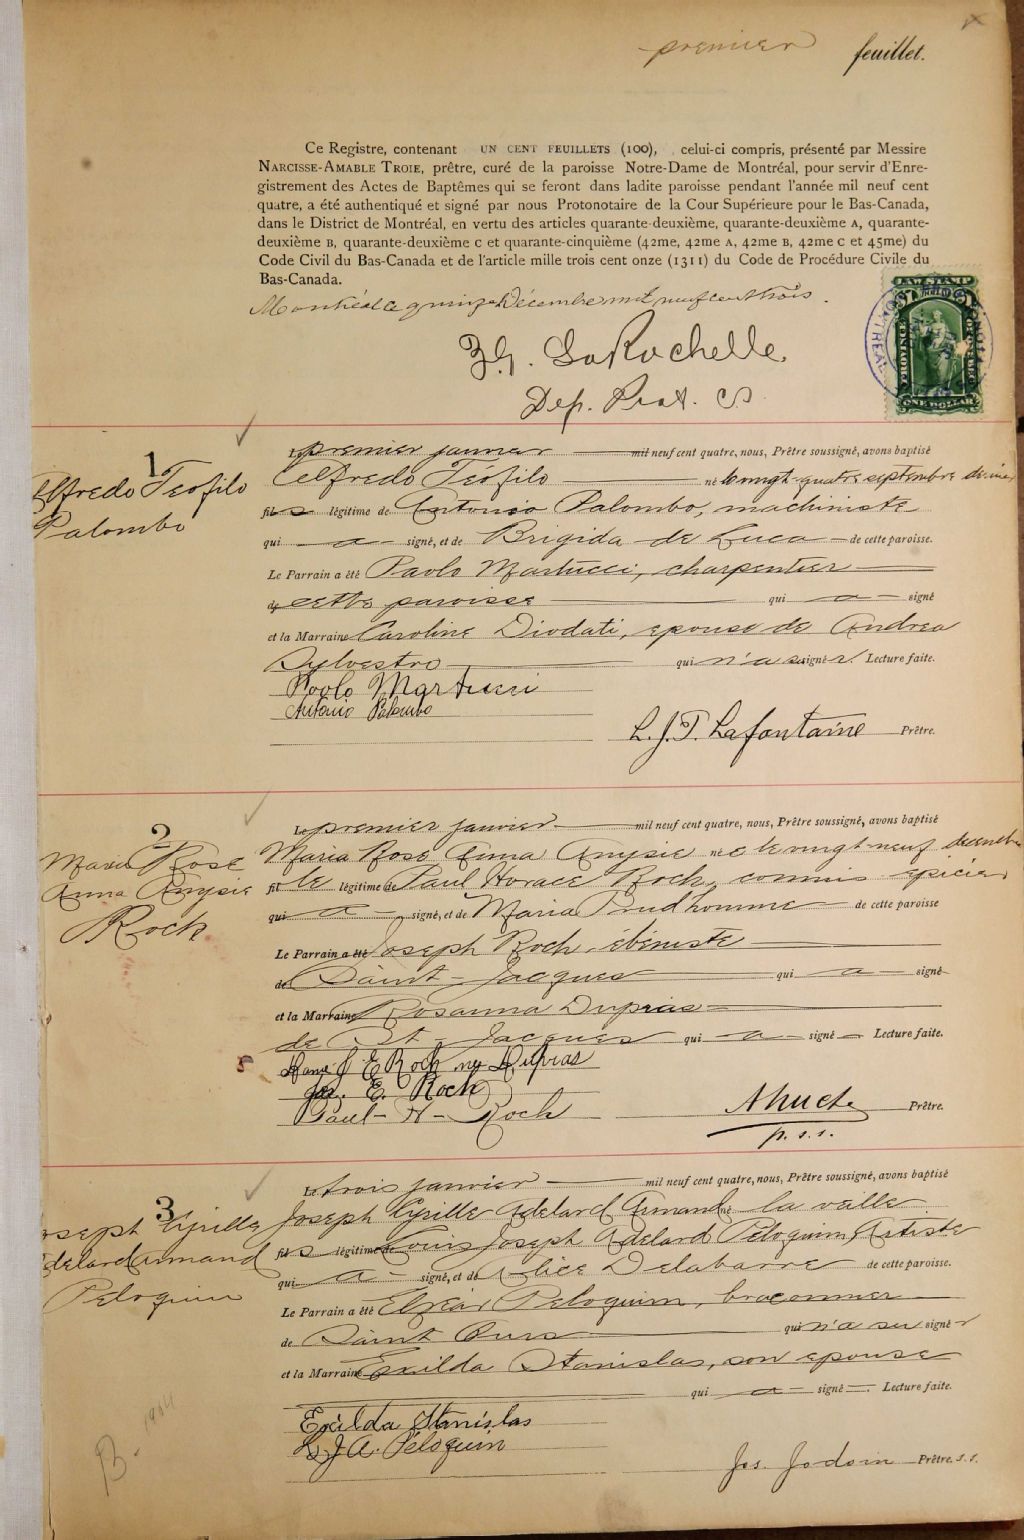 premier feuillet.
Ce Registre, contenant UN CENT FEUILLETS (100), celui-ci compris, présenté par Messire
NARCISSE-AMABLE TROIE, prêtre, curé de la paroisse Notre-Dame de Montréal, pour servir d'Enre-
gistrement des Actes de Baptêmes qui se feront dans ladite paroisse pendant l'année mil neuf cent
quatre, a été authentiqué et signé par nous Protonotaire de la Cour Supérieure pour le Bas-Canada,
dans le District de Montréal, en vertu des articles quarante-deuxième, quarante-deuxième A, quarante-
deuxième B, quarante-deuxième C et quarante-cinquième (42me, 42me A, 42me B, 42me C et 45me) du
Code Civil du Bas-Canada et de l'article mille trois cent onze (1311) du Code de Procédure Civile du
Bas-Canada.
Montréal ce quinze Décembre mil neuf cent trois.
LaRochelle
Dep. Prot. CS
LAW STAMP
PROVINCE
ONE DOLLAR
MONTREAL
1
Elfredo Teofilo
Palombo
Le premier janvier mil neuf cent quatre, nous, Prêtre soussigné, avons baptisé
Celfredo Teófilo né le vingt-quatre septembre dernier
fils légitime de Antonio Palombo, machiniste
qui a signé, et de Brigida de Luca de cette paroisse.
Le Parrain a été Paolo Martucci, charpentier
de cette paroisse qui a signé
et la Marraine Caroline Diodati, epouse de Andrea
Sylvestro qui n'a su signer. Lecture faite.
Paolo Martucci
Antonio Palombo
L. J. T. Lafontaine Prêtre.
2
Maria Rose
Anna Anysie
Roch
Le premier janvier mil neuf cent quatre, nous, Prêtre soussigné, avons baptisé
Maria Rose Anna Anysie née le vingt-neuf décembre
fille légitime de Paul Horace Roch, commis épicier
qui a signé, et de Maria Prudhomme de cette paroisse
Le Parrain a été Joseph Roch, ébéniste
de Saint-Jacques qui a signé
et la Marraine Rosanna Dupras
de St-Jacques qui a signé Lecture faite.
Dame J E Roch née Dupras
Jos. E. Roch
Paul-H-Roch
A Huet Prêtre.
p.s.s.
3
Joseph Cyrille
Adelard Armand
Peloquin
Le trois janvier mil neuf cent quatre, nous, Prêtre soussigné, avons baptisé
Joseph Cyrille Adelard Armand né la veille
fils légitime de Louis Joseph Adelard Peloquin, Artiste
qui a signé, et de Alice Delabarre de cette paroisse.
Le Parrain a été Elzéar Peloquin,
de Saint Ours qui n'a su signer
et la Marraine Exilda Stanislas, son epouse
qui a signé Lecture faite.
Exilda Stanislas
L. J. A. Péloquin
Jos. Jodoin Prêtre s.s.
B. 1904